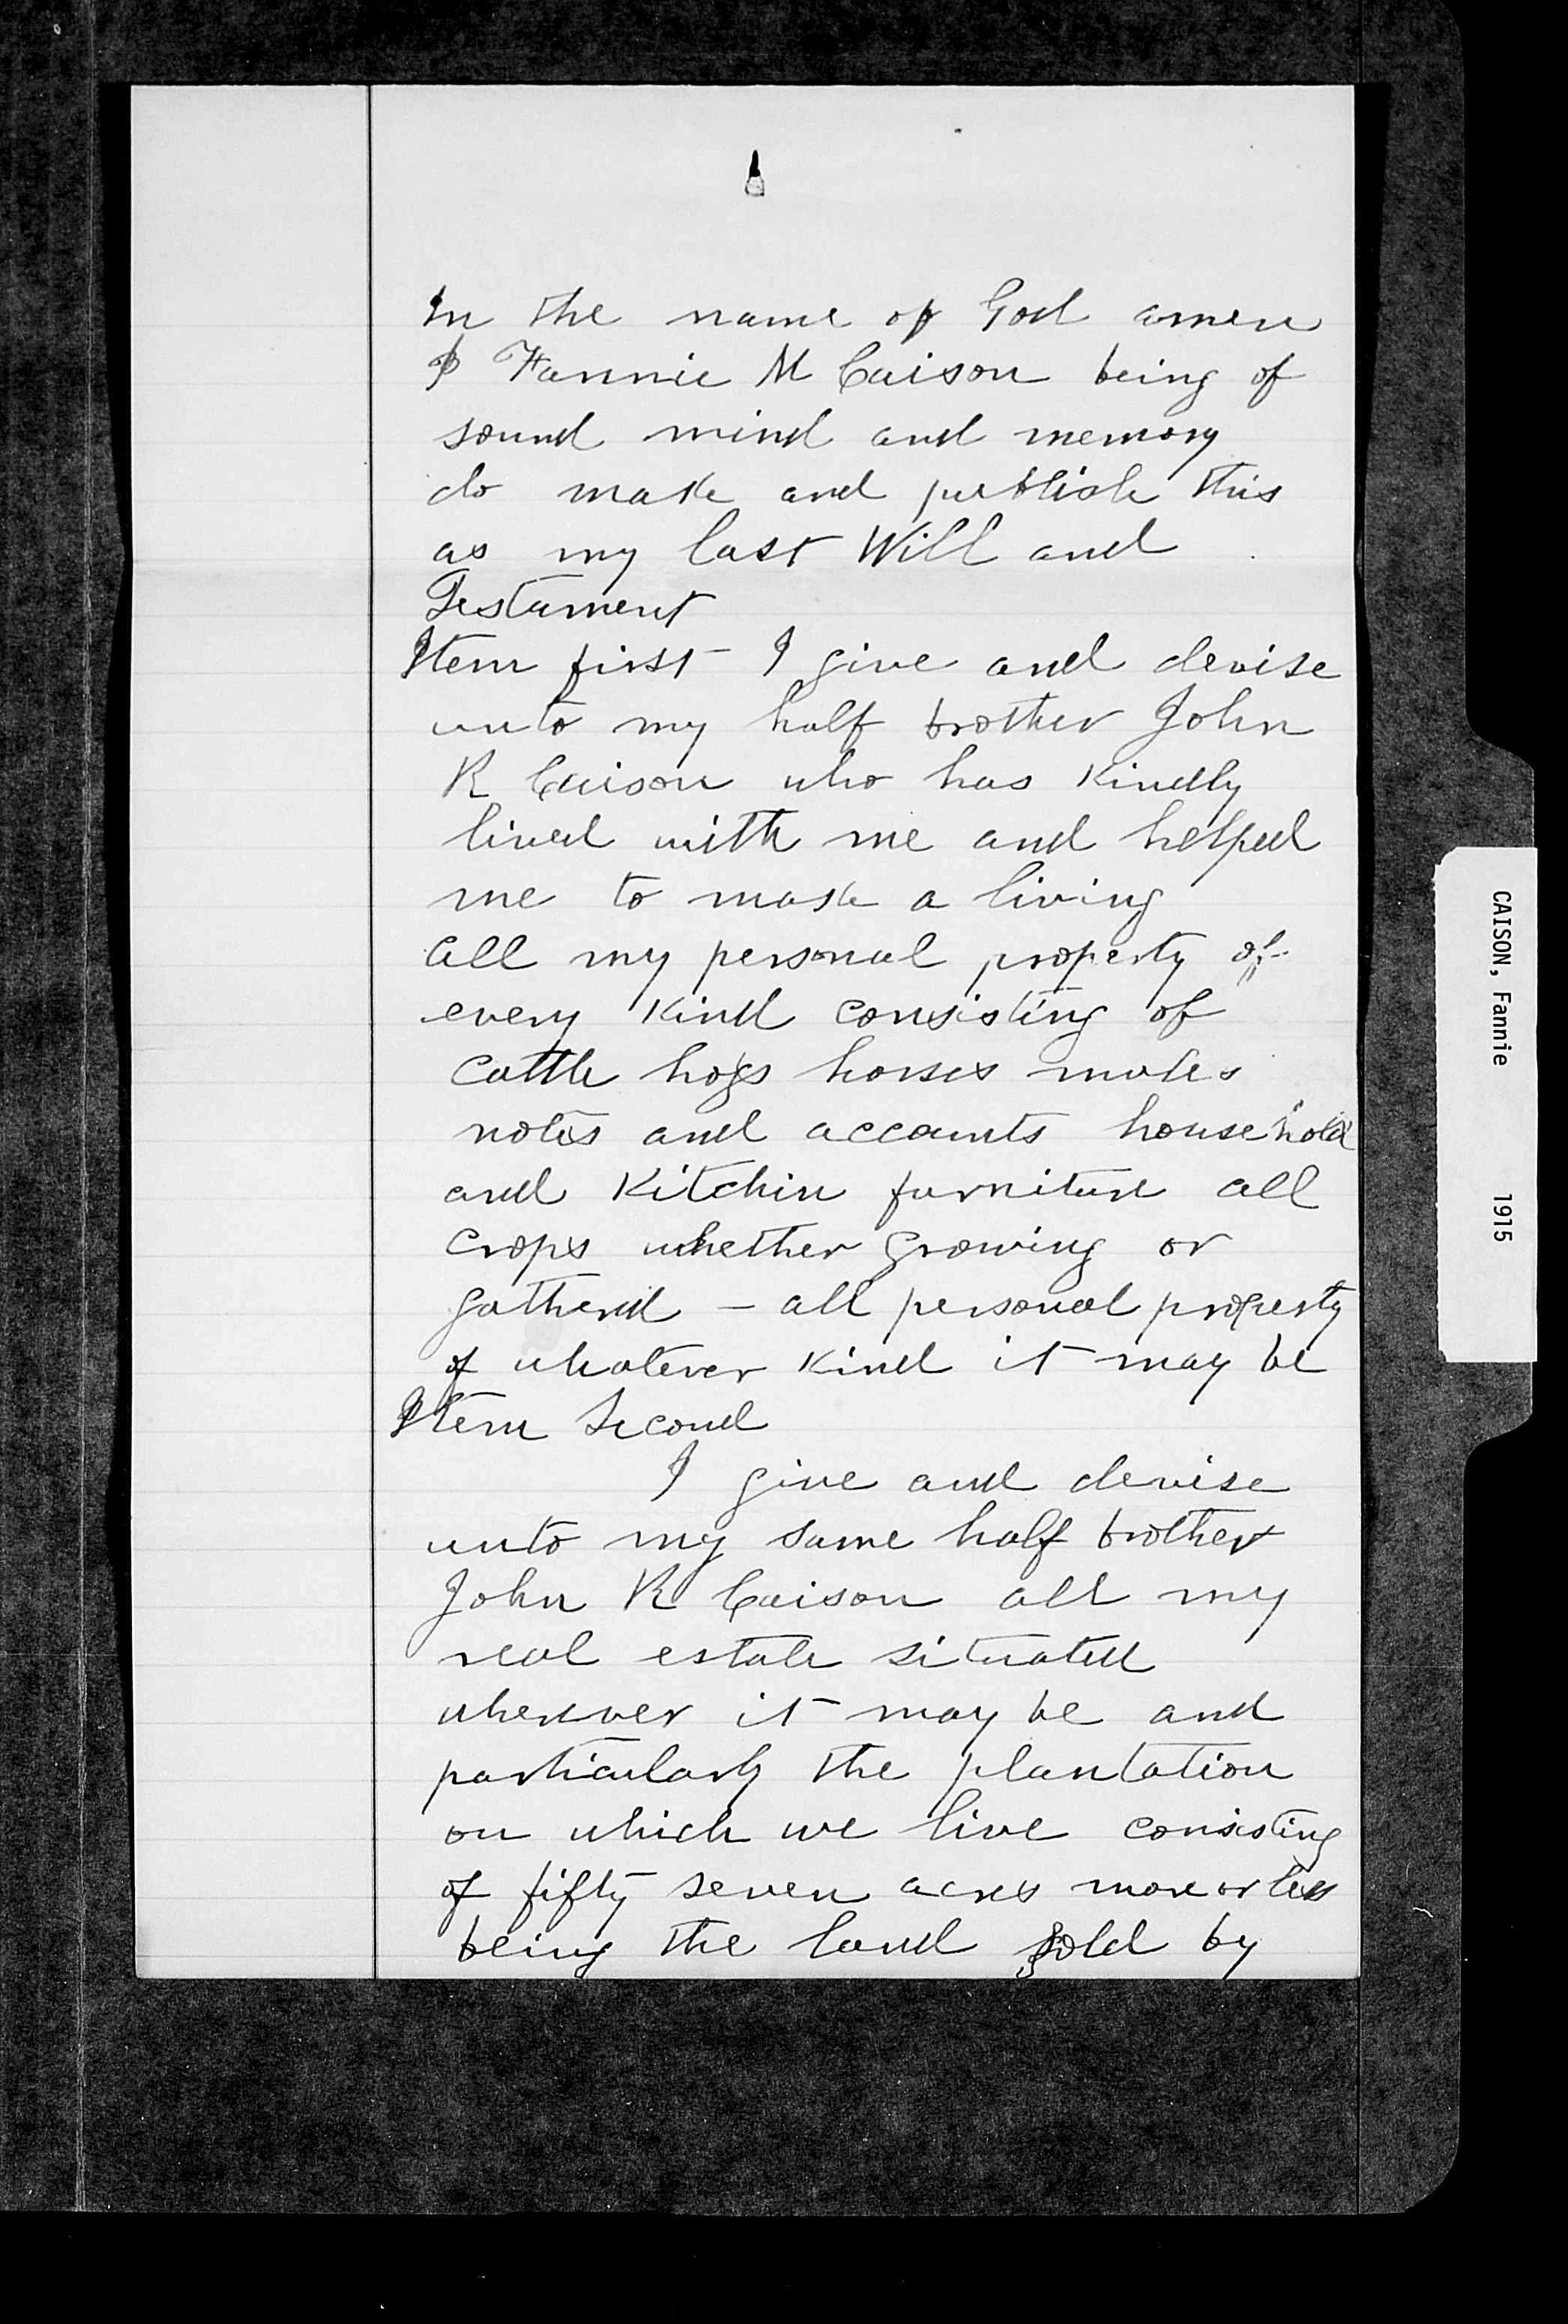 In the name of God amen
I Fannie M Caison being of
sound mind and memory
do make and publish this
as my last Will and
Testament
Item first I give and devise
unto my half brother John
R Caison who has kindly
lived with me and helped
me to make a living
all my personal property of
every kind consisting of
cattle hogs horses mules
notes and accounts household
and Kitchin furniture all
crops whether growing or
gatherd – all personal property
of whatever kind it may be
Item Second
I give and devise
unto my same half brother
John R Caison all my
real estate situated
wherever it may be and
particularly the plantation
on which we live consisting
of fifty seven acres more or less
being the land sold by
CAISON, Fannie 1915